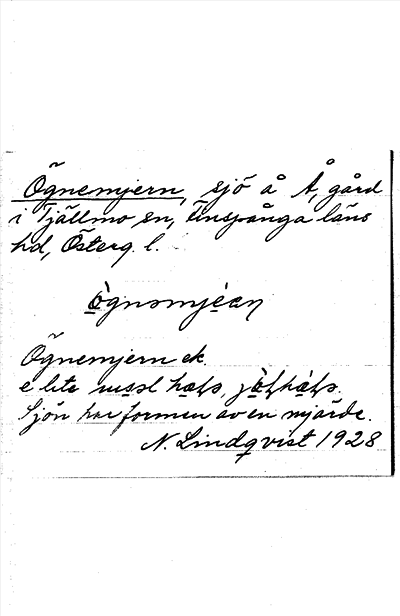 Ögnemjern, sjö å Å, gård
i Tjällmo sn, Finspånga läns
hd, Österg. l.
ògnəmjèæɳ
Ögnemjern ek.
e lite
Sjön har formen av en mjärde.
N. Lindqvist 1928